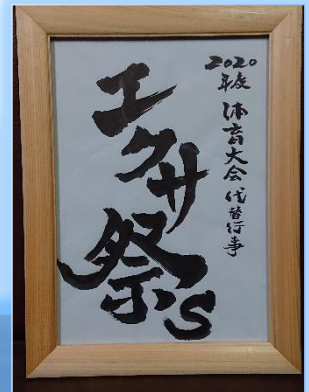 2020
年度 体育大会 代替行事
エクサ祭's